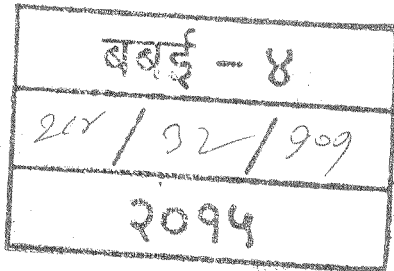 बबई - ४
/ ३२ / १०१
२०१५